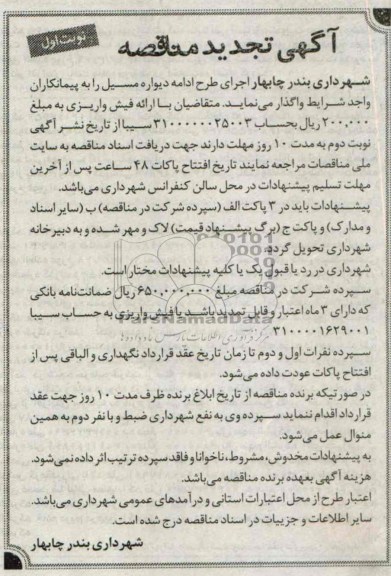 نوبت اول
آگهی تجدید مناقصه
شهرداری بندر چابهار اجرای طرح ادامه دیواره مسیل را به پیمانکاران
واجد شرایط واگذار می‌نماید. متقاضیان با ارائه فیش واریزی به مبلغ
۲۰۰,۰۰۰ ریال بحساب ۳۱۰۰۰۰۰۰۲۵۰۰۳ سیبا از تاریخ نشر آگهی
نوبت دوم به مدت ۱۰ روز مهلت دارند جهت دریافت اسناد مناقصه به سایت
ملی مناقصات مراجعه نمایند تاریخ افتتاح پاکات ۴۸ ساعت پس از آخرین
مهلت تسلیم پیشنهادات در محل سالن کنفرانس شهرداری می‌باشد.
پیشنهادات باید در ۳ پاکت الف (سپرده شرکت در مناقصه) ب (سایر اسناد
و مدارک) و پاکت ج (برگ پیشنهاد قیمت) لاک و مهر شده و به دبیرخانه
شهرداری تحویل گردد.
شهرداری در رد یا قبول یک یا کلیه پیشنهادات مختار است.
سپرده شرکت در مناقصه مبلغ ۶۵۰,۰۰۰,۰۰۰ ریال ضمانت‌نامه بانکی
که دارای ۳ ماه اعتبار و قابل تمدید باشد یا فیش واریزی به حساب سیبا
۳۱۰۰۰۰۱۶۲۹۰۰۱
سپرده نفرات اول و دوم تا زمان تاریخ عقد قرارداد نگهداری و الباقی پس از
افتتاح پاکات عودت داده می‌شود.
در صورتیکه برنده مناقصه از تاریخ ابلاغ برنده ظرف مدت ۱۰ روز جهت عقد
قرارداد اقدام ننماید سپرده وی به نفع شهرداری ضبط و با نفر دوم به همین
منوال عمل می‌شود.
به پیشنهادات مخدوش، مشروط، ناخوانا و فاقد سپرده ترتیب اثر داده نمی‌شود.
هزینه آگهی بعهده برنده مناقصه می‌باشد.
اعتبار طرح از محل اعتبارات استانی و درآمدهای عمومی شهرداری می‌باشد.
سایر اطلاعات و جزییات در اسناد مناقصه درج شده است.
شهرداری بندر چابهار